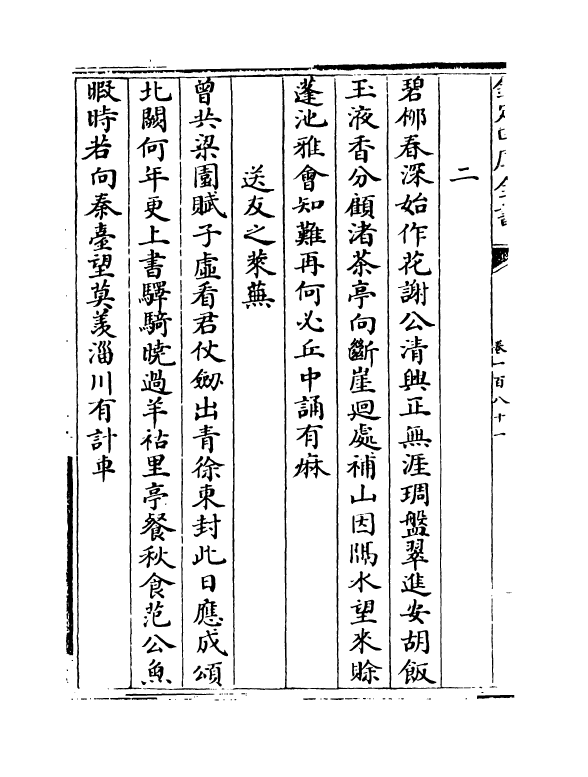 欽定四庫全書
卷一百八十一
二
碧柳春深始作花謝公清興正無涯琱盤翠進安胡飯
玉液香分顧渚茶亭向斷崖迴處補山因隔水望來賖
蓬池雅會知難再何必丘中誦有麻
送友之萊蕪
曾共梁園賦子虛看君仗劒出青徐東封此日應成頌
北闕何年更上書驛騎曉過羊祜里亭餐秋食范公魚
暇時若向秦臺望莫羨淄川有計車